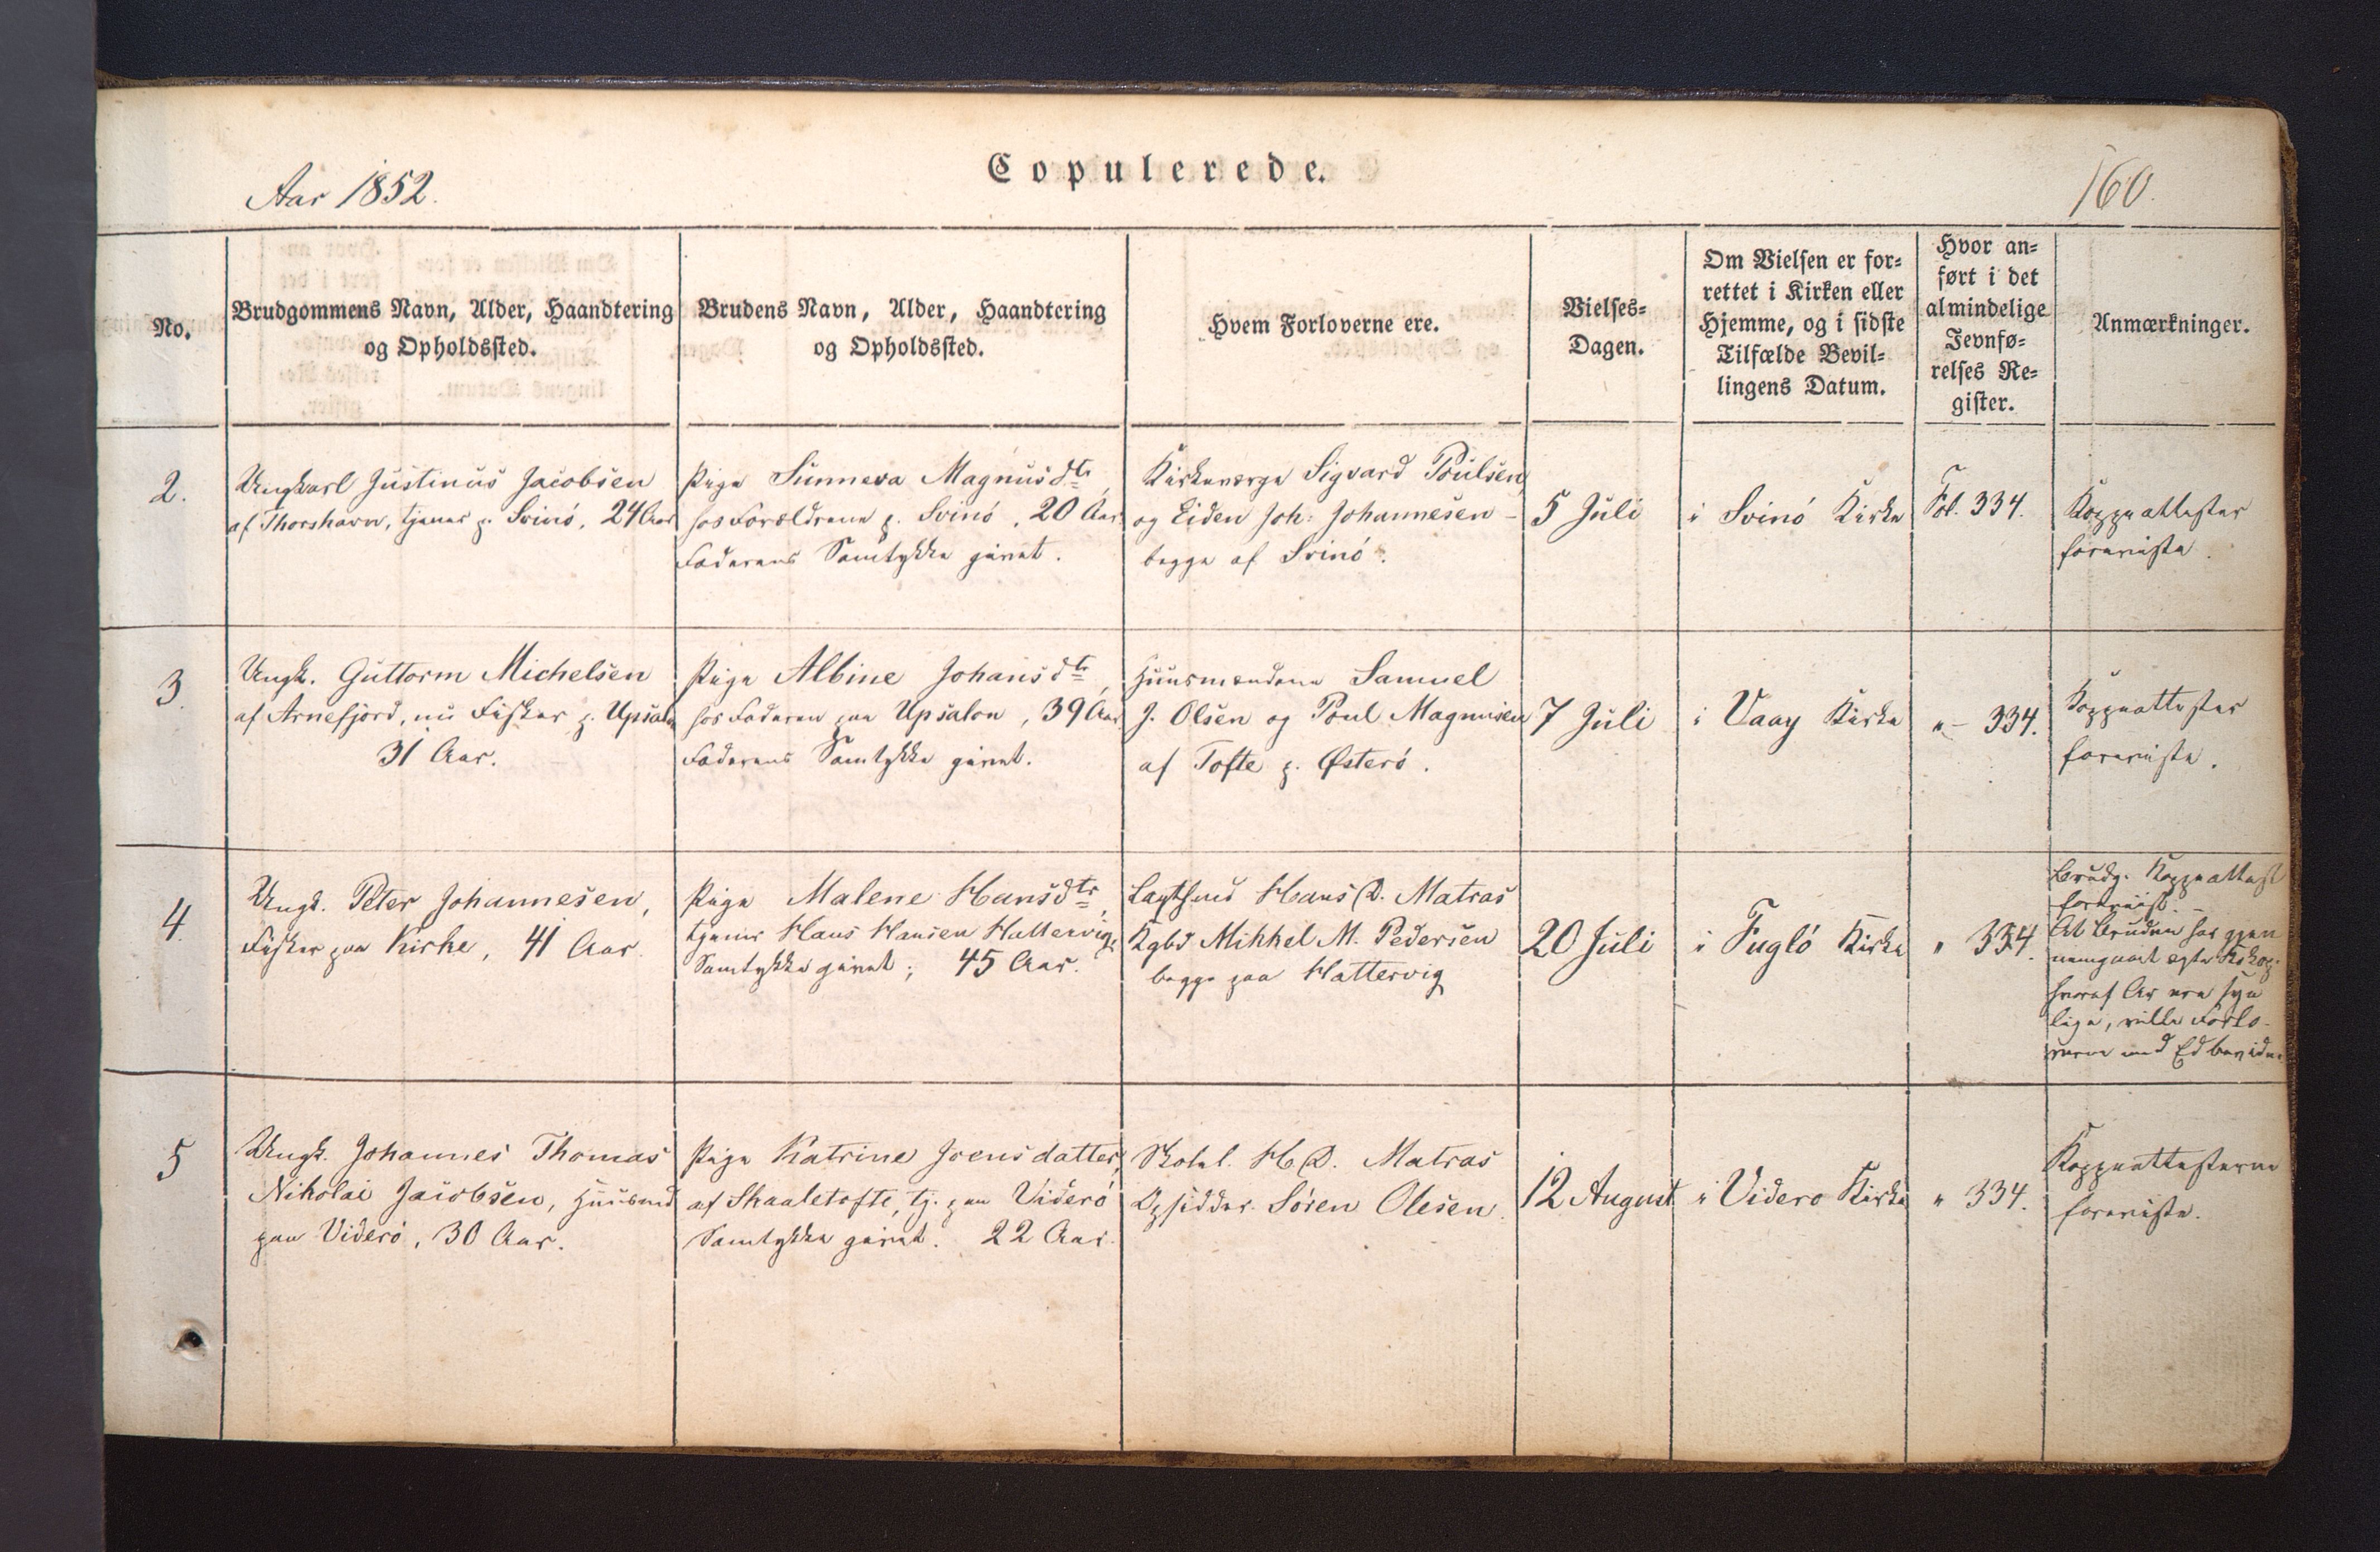 Copulerede.
Aar 1852.
160.
No.
Brudgommens Navn, Alder, Haandtering
og Opholdssted.
Brudens Navn, Alder, Haandtering
og Opholdssted.
Hvem Forloverne ere.
Vielses-
Dagen.
Om Vielsen er for-
rettet i Kirken eller
Hjemme, og i sidste
Tilfælde Bevil-
lingens Datum.
Hvor an-
ført i det
almindelige
Jevnfø-
relses Re-
gister.
Anmærkninger.
2.
Ungkarl Justinus Jacobsen
af Thorshavn, tjener p. Svinö, 24 Aar
Pige Sunneva Magnusdtr,
hos Forældrene p. Svinö, 20 Aar
Faderens Samtykke givet.
Kirkeværge Sigvard Poulsen
og Eiden Joh: Johannesen -
begge af Svinö.
5 Juli
i Svinö Kirke
Fol. 334.
Koppeattester
foreviste.
3.
Ungk. Guttorm Michelsen
af Arnefjord, nu Fisker p. Upsalon
31 Aar.
Pige Albine Johansdtr,
hos Faderen paa Upsalon, 39 Aar
Faderens Samtykke givet.
Huusmændene Samuel
J. Olsen og Poul Magnusen
af Tofte p. Østerö.
7 Juli
i Vaay Kirke
" - 334.
Koppeattester
foreviste.
4.
Ungk. Peter Johannesen,
Fisker paa Kirke, 41 Aar.
Pige Malene Hansdtr,
tjener Hans Hansen Hattervig,
Samtykke givet; 45 Aar.
Lagtsmd Hans D. Matras
Kgbd Mikkel M. Pedersen
begge paa Hattervig
20 Juli
i Fuglö Kirke
" 334.
Brudg. Koppeattest
forevist. -
At Bruden har gjen
nemgaaet ægte Kokop.
hvoraf Ar ere syn
lige, ville Forlo-
verne med Ed bevidne
5
Ungk. Johannes Thomas
Nikolai Jacobsen, Huusmd
paa Viderö, 30 Aar.
Pige Katrine Joensdatter,
af Skaaletofte, tj. paa Viderö
Samtykke givet. 22 Aar.
Skolel. H D. Matras
Opsidder Sören Olesen.
12 August
i Viderö Kirke
" 334.
Koppeattesterne
foreviste.